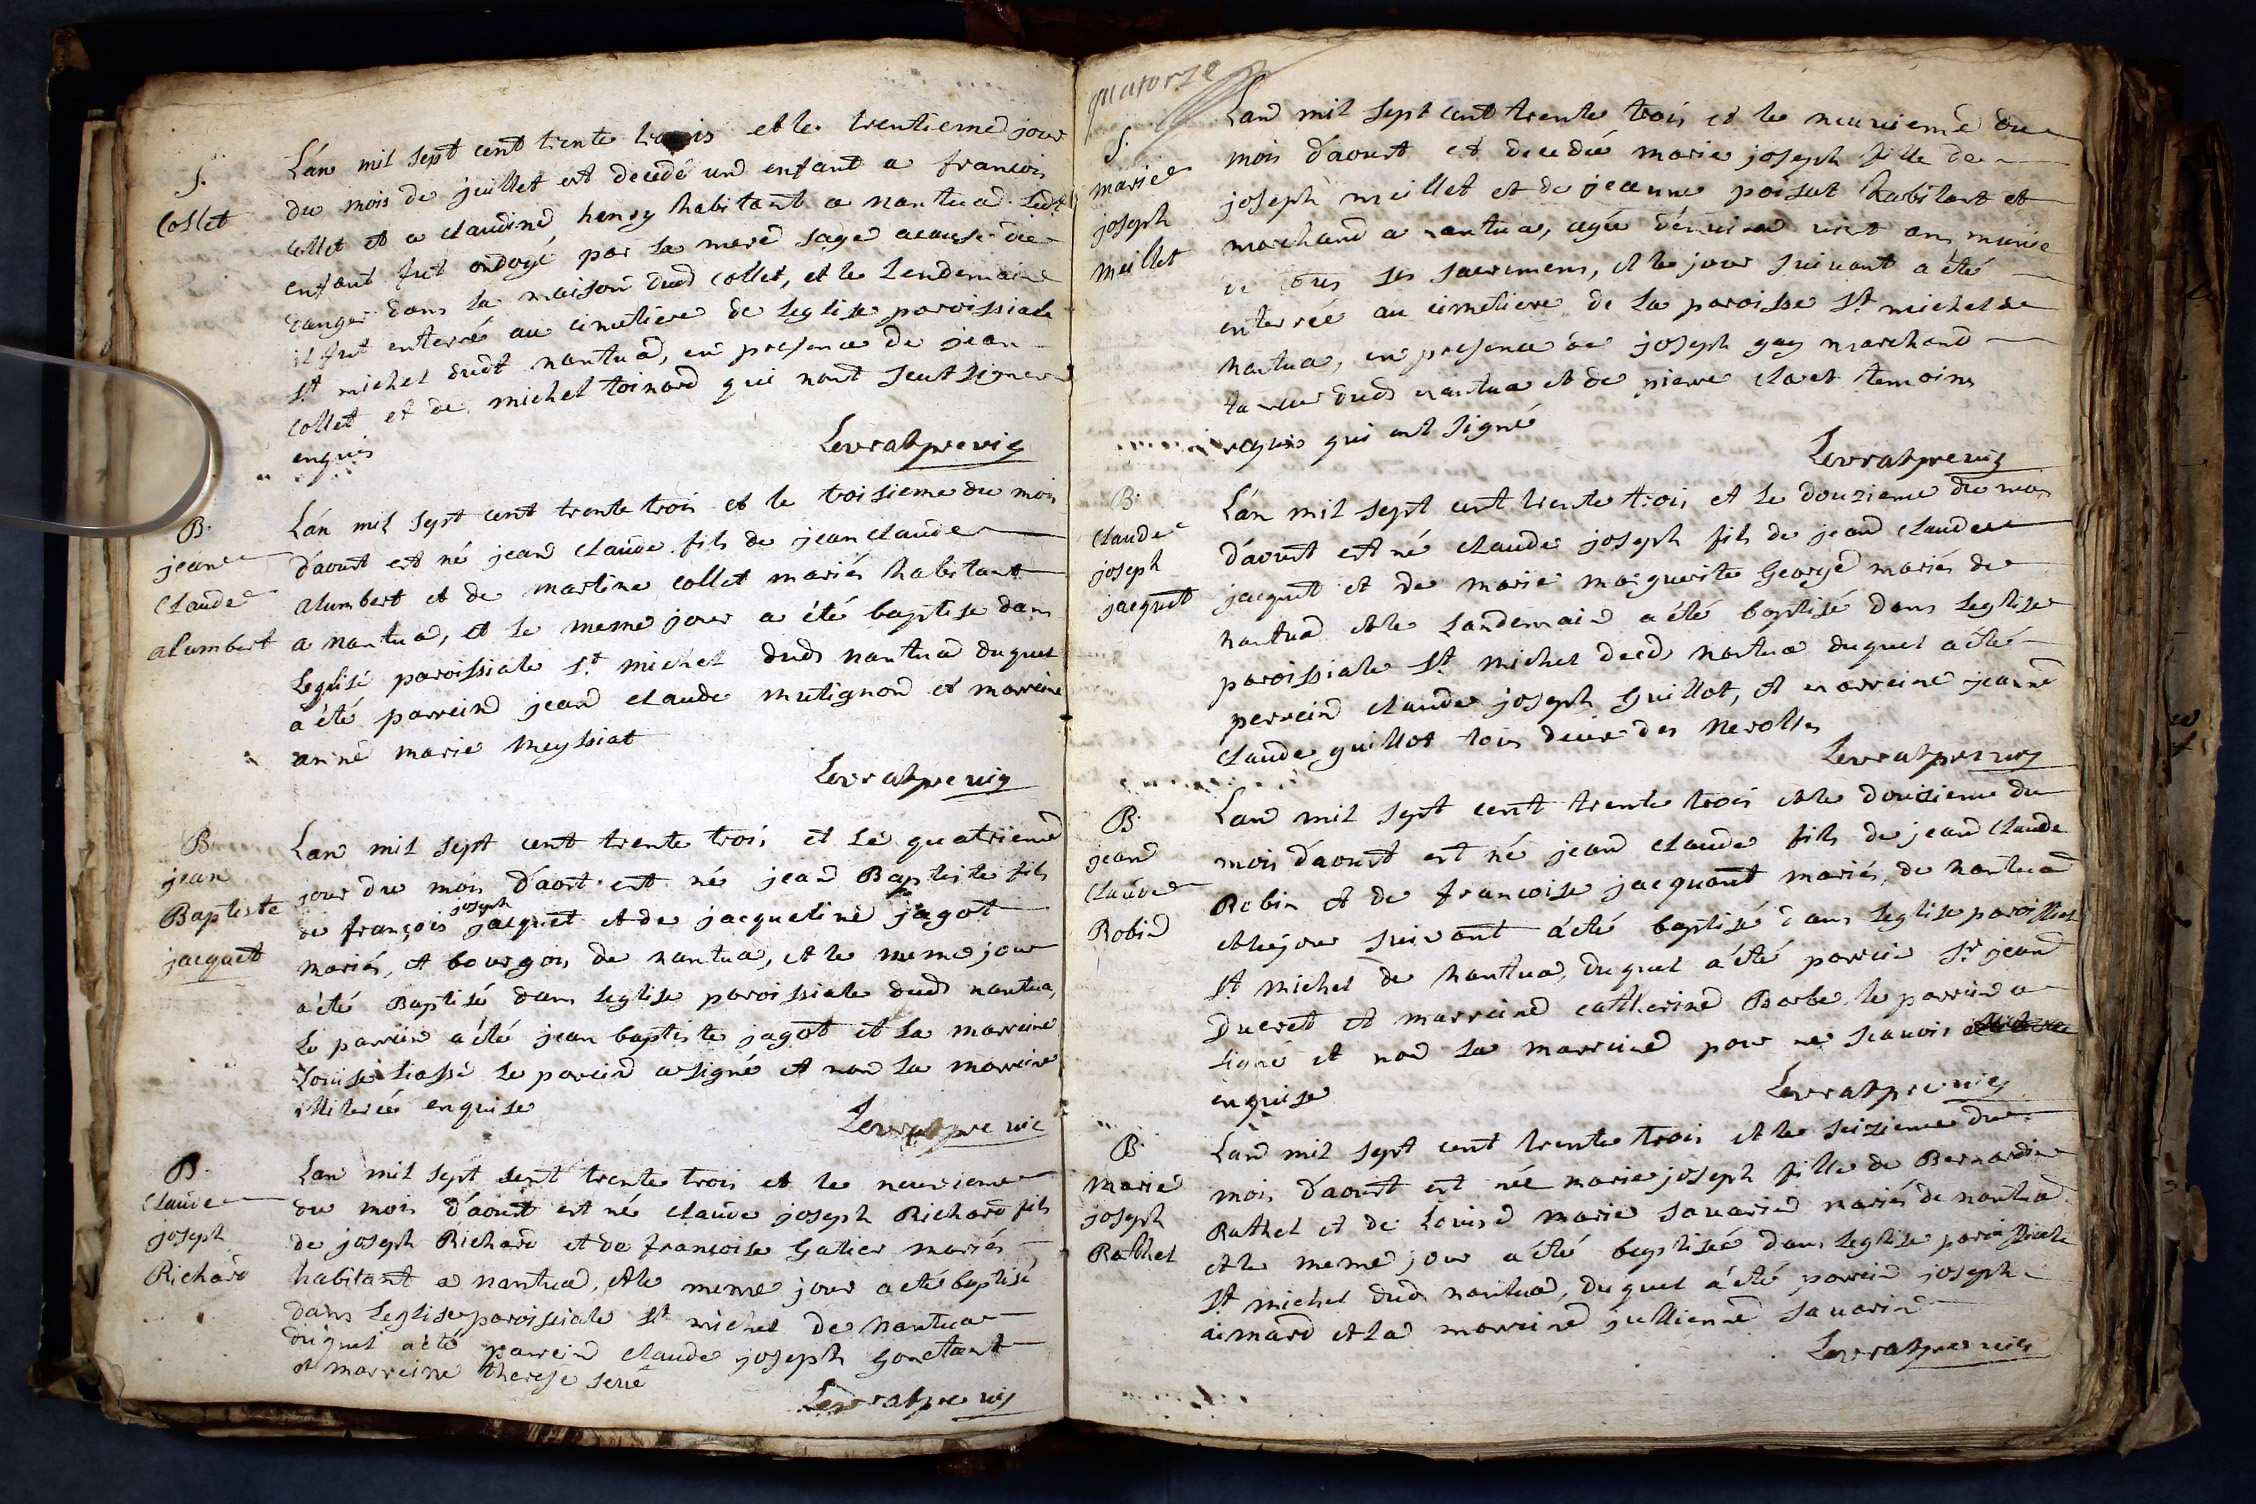 S.
Collet
L'an mil sept cent trente trois et le trentieme jour
du mois de juillet est decedé un enfant a francois
collet et a claudine henry habitant a nantua ledt
enfant fut ondoyé par la mere sage acause de
danger dans la maison dud collet, et le lendemain
il fut enterré au cimetiere de leglise paroissiale
st michel dudt nantua, en presence de jean
collet et de michel toinard qui nont sceut signer
enquis
Levrat pre vic
B.
jean
claude
alumbert
L'an mil sept cent trente trois et le troisieme du mois
d'aoust est né jean claude fils de jean claude
alumbert et de martine collet mariés habitant
a nantua, et le meme jour a été baptise dans
leglise paroissiale st michel dud nantua duquel
a été parrein jean claude mutignon et marreine
anne marie meyssiat
Levrat pre vic
B
jean
Baptiste
jacquet
Lan mil sept cent trente trois et le quatrieme
jour du mois d'aost est né jean Baptiste fils
de françois joseph jacquet et de jacqueline jagot
mariés, et bourgois de nantua, et le meme jour
a été Baptisé dans leglise paroissiale dud nantua,
le parrein a été jean baptiste jagot et la marreine
Louise liassé le parrein a signé et non la marreine
illiterée enquise
Levrat pre vic
B.
claude
joseph
Richard
Lan mil sept sent trente trois et le neuvieme
du mois d'aoust est né claude joseph Richard fils
de joseph Richard et de françoise Galier mariés
habitant a nantua, et le meme jour a été baptisé
dans leglise paroissiale st michel de nantua
duquel a été parrein claude joseph Gonetant
et marreine therese serié
Levrat pre vic
quatorze
S.
marie
joseph
meillet
Lan mil sept cent trente trois et le neuvieme du
mois d'aoust est decedée marie joseph fille de
joseph meillet et de jeanne poisat habitant et
marchand a nantua, agée d'environ vint ans munie
de tous ses sacremens, et le jour suivant a été
enterrée au cimetiere de la paroisse st michel de
nantua, en presence de joseph gay marchand
taneur dud nantua et de pierre claret temoins
requis qui ont signé
Levrat pre vic
B.
claude
joseph
jacquet
L'an mil sept cent trente trois et le douzieme du mois
d'aoust est né claude joseph fils de jean claude
jacquet et de marie marguerite George mariés de
nantua et le landemain a été baptisé dans leglise
paroissiale st michel decd nantua duquel a été
perrein claude joseph Guillot, et marreine jeanne
claude guillot tous deux des nerolles
Levrat pre vic
B.
jean
claude
Robin
Lan mil sept cent trente trois et le douzieme du
mois d'aoust est né jean claude fils de jean claude
Robin et de francoise jacquant mariés, de nantua
et le jour suivant a été baptisé dans leglise paroissiale
st michel de nantua, duquel a été parrein sr jean
Ducret et marreine catherine Barbe, le parrein a
signé et non la marreine pour ne scavoir
enquise
Levrat pre vic
B.
marie
joseph
Rathel
L'an mil sept cent trente trois et le seizieme du
mois d'aoust est née marie joseph fille de Bernardin
Rathel et de Louise marie savarin mariés de nantua
et le meme jour a été baptisée dans leglise paroissiale
st michel dud nantua, duquel a été parrein joseph
aimard et la marreine jullienne savarin
Levrat pre vic